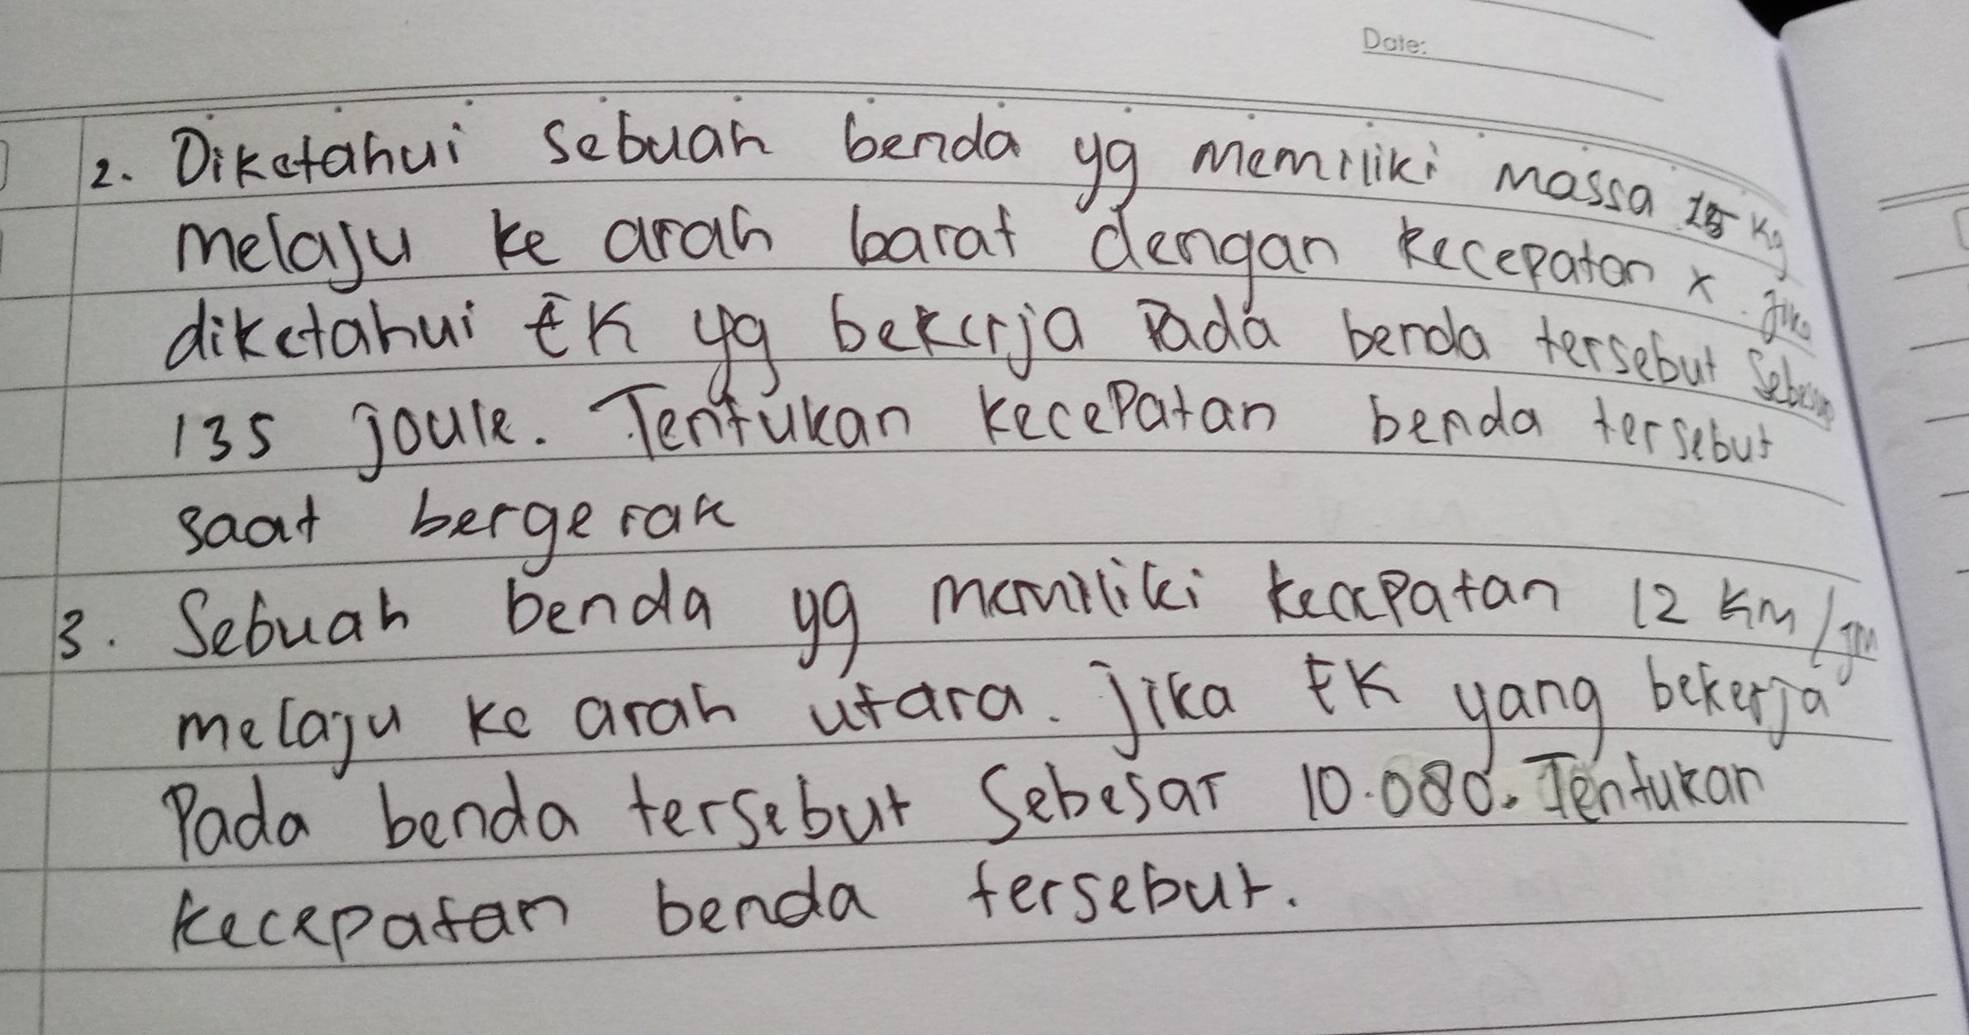 Date:
2. Diketahui sebuah benda yg memiliki massa 15 Kg
melaju ke arah barat dengan kecepatan x. Jika
diketahui EK yg bekerja Pada benda tersebut Sebesar
135 joule. Tentukan kecepatan benda tersebut
saat bergerak
3. Sebuah benda yg memiliki kecepatan 12 km/jm
melaju ke arah utara. Jika EK yang bekerja
Pada benda tersebut Sebesar 10.080. Tentukan
kecepatan benda tersebut.